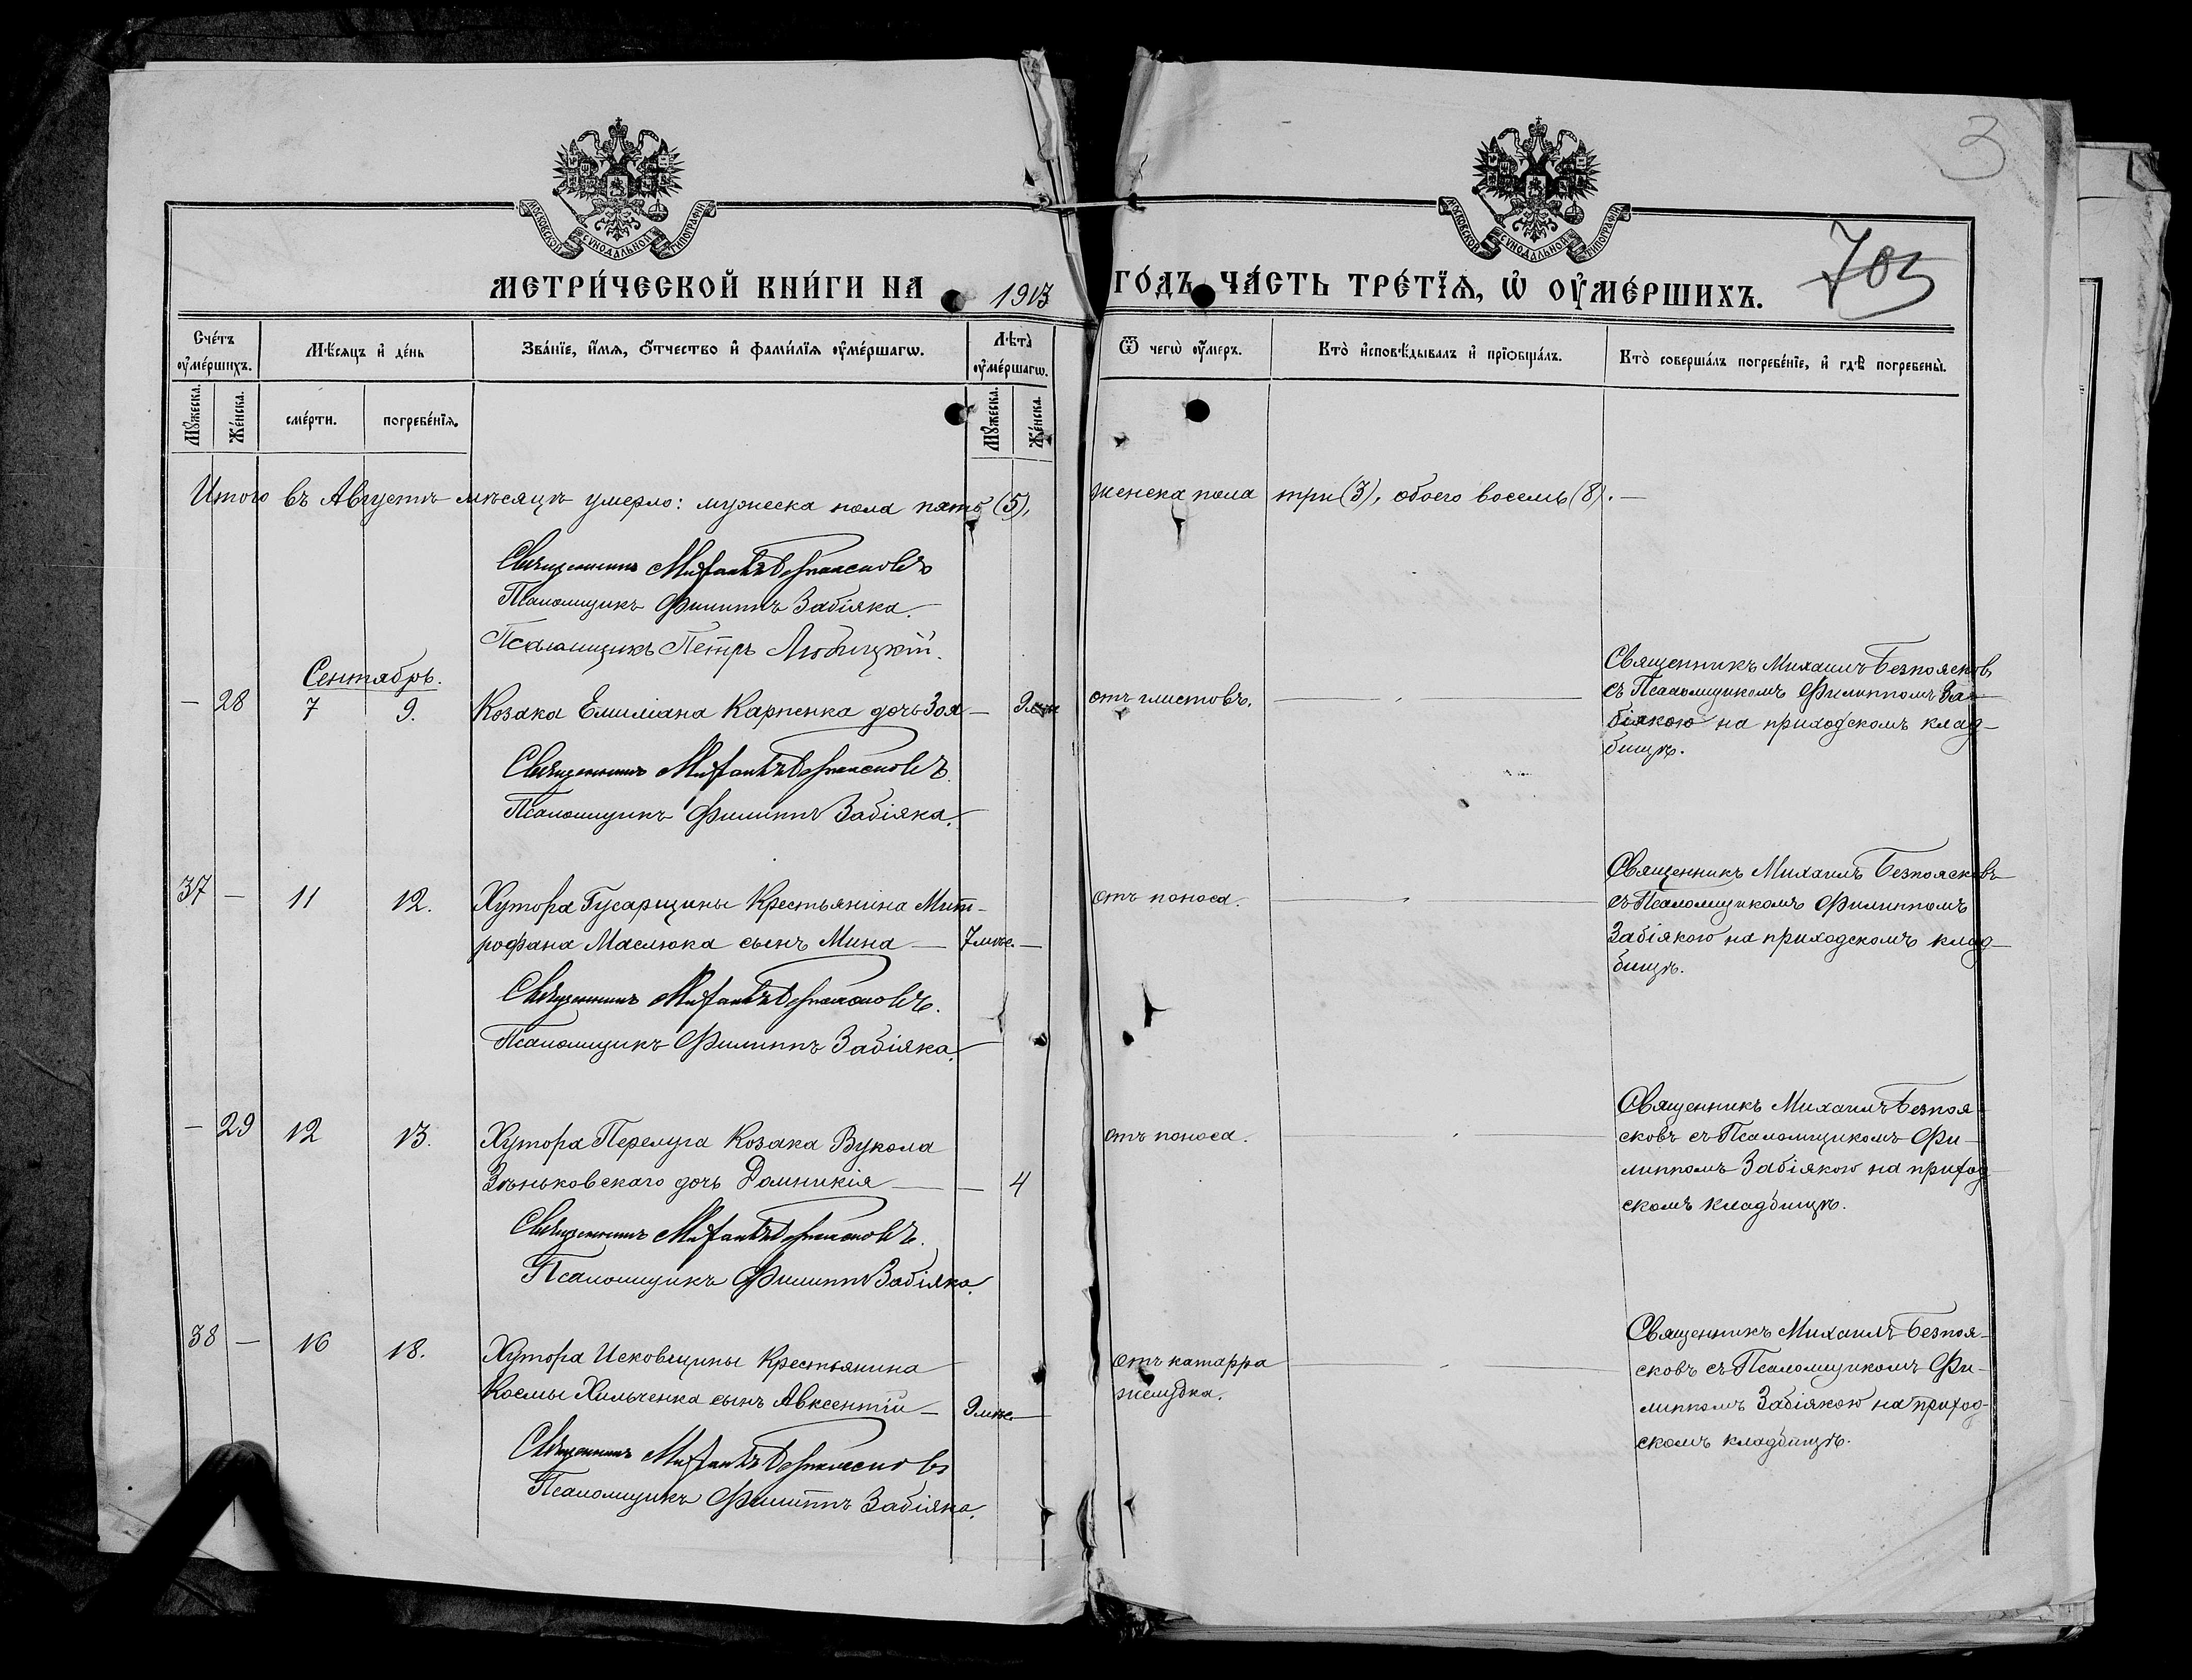 3
МОСКОВСКОЙ СУНОДАЛЬНОЙ ТИПОГРАФІИ
МОСКОВСКОЙ СУНОДАЛЬНОЙ ТИПОГРАФІИ
705
МЕТРИ́ЧЕСКОЙ КНИ́ГИ НА 1913 ГО́ДЪ, ЧА́СТЬ ТРЕ́ТЇѦ, Ѽ ОУ҆МЕ́РШИХЪ.
Сче́тъ оу҆ме́ршихъ.
Мѣ́сяцъ и҆ де́нь
Зва́нїе, и҆́мѧ, ѻ҆́тчество и҆ фами́лїѧ оу҆ме́ршагѡ.
Лѣ́та оу҆ме́ршагѡ.
Ѿ чегѡ̀ оу҆́меръ.
Кто̀ и҆сповѣ́дывалъ и҆ прїѡбща́лъ.
Кто̀ соверша́лъ погребе́нїе, и҆ гдѣ̀ погребены̀.
Мꙋ́жеска. Же́нска. сме́рти. погребе́нїѧ. Мꙋ́жеска. Же́нска.
Итого въ Августѣ мѣсяцѣ умерло: мужеска пола пять (5), женска пола три (3), обоего восемь (8). —
Священникъ Михаилъ Безпоясковъ
Псаломщикъ Филиппъ Забіяка.
Псаломщикъ Петръ Любицкій.
Сентябрь.
— 28 7 9. Козака Емиліана Карпенка дочь Зоя — 9 мѣс отъ глистовъ. —
Священникъ Михаилъ Безпоясковъ
съ Псаломщикомъ Филиппомъ За-
біякою на приходскомъ клад-
бищѣ.
Священникъ Михаилъ Безпоясковъ.
Псаломщикъ Филиппъ Забіяка.
37 — 11 12. Хутора Гусарщины Крестьянина Мит-
рофана Маслюка сынъ Мина — 7 мѣс. —
отъ поноса. —
Священникъ Михаилъ Безпоясковъ
съ Псаломщикомъ Филиппомъ
Забіякою на приходскомъ клад-
бищѣ.
Священникъ Михаилъ Безпоясковъ.
Псаломщикъ Филиппъ Забіяка.
— 29 12 13. Хутора Перелуга Козака Вукола
Зѣньковскаго дочь Домникія — — 4
отъ поноса. —
Священникъ Михаилъ Безпоя-
сковъ съ Псаломщикомъ Фи-
липпомъ Забіякою на приход-
скомъ кладбищѣ.
Священникъ Михаилъ Безпоясковъ.
Псаломщикъ Филиппъ Забіяка.
38 — 16 18. Хутора Исковщины Крестьянина
Космы Хильченка сынъ Авксентій — 9 мѣс. —
отъ катарра
желудка. —
Священникъ Михаилъ Безпоя-
сковъ съ Псаломщикомъ Фи-
липпомъ Забіякою на приход-
скомъ кладбищѣ.
Священникъ Михаилъ Безпоясковъ
Псаломщикъ Филиппъ Забіяка.